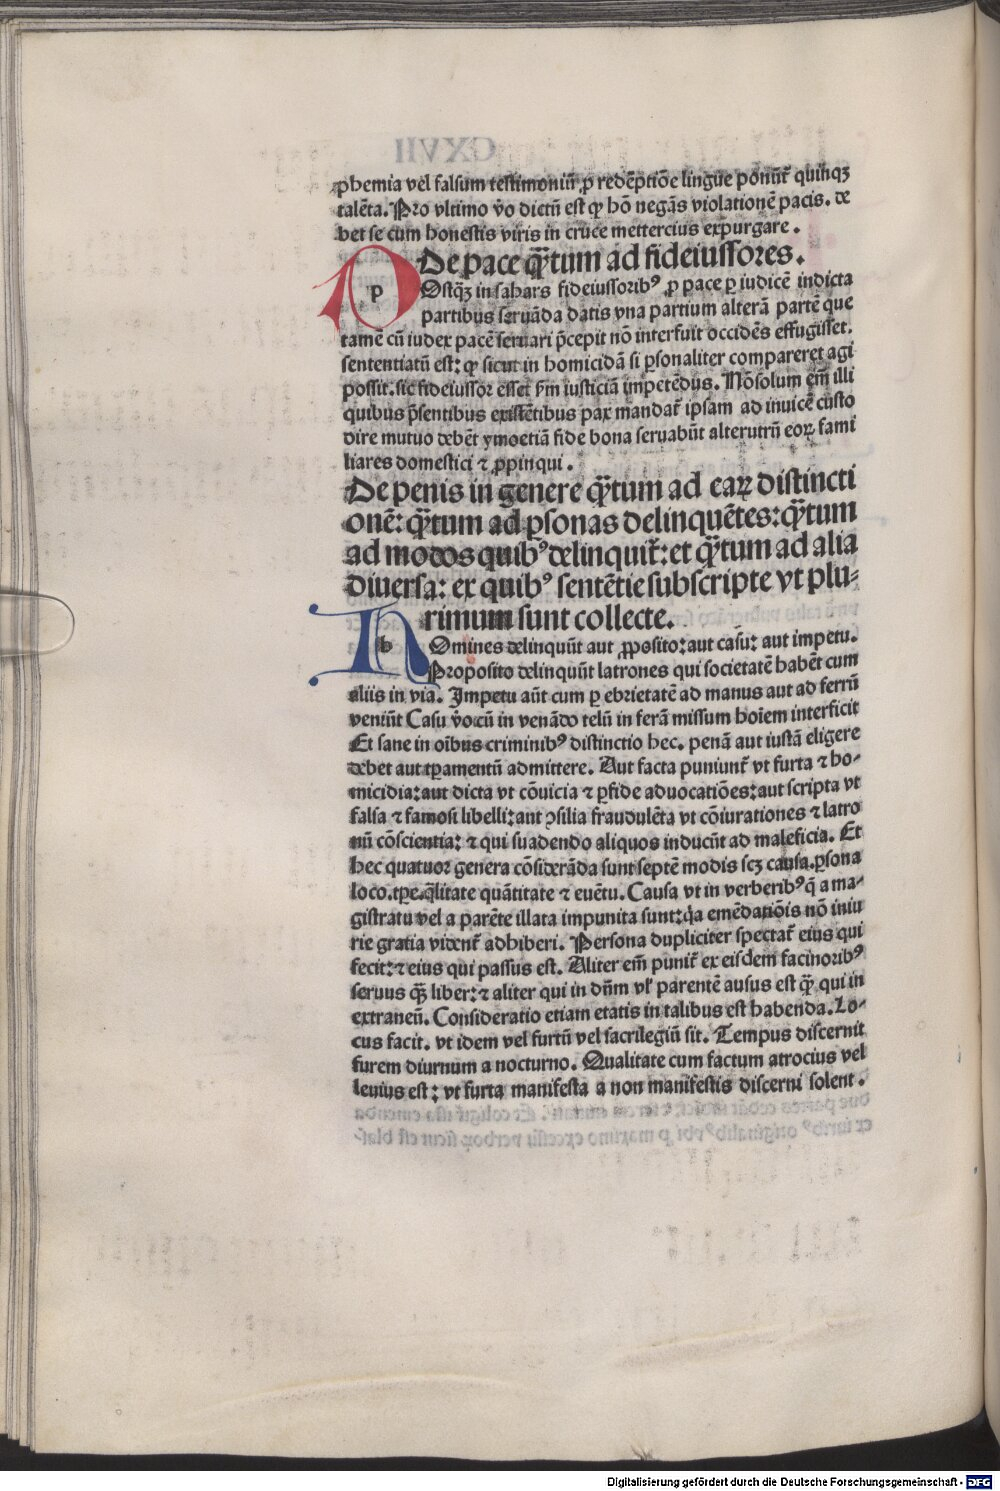 phemia vel falsum testimoniū ꝓ redēptiōe lingue ponūt᷑ quinqꝫ
talēta. Pro vltimo v̄o dictū est ꝙ hō negās violationē pacis. de
bet se cum honestis viris in cruce mettercius expurgare.
De pace qȝtum ad fideiussores.
p Ostqȝ in sahars fideiussoribꝰ ꝓ pace ꝑ iudicē indicta
partibus seruāda datis vna partium alterā partē que
tamē cū iudex pacē seruari p̄cepit nō interfuit occidēs effugisset.
sententiatū est: ꝙ sicut in homicidā si ꝑsonaliter compareret agi
possit. sic fideiussor esset ẜm iusticiā impetēdus. Nōsolum em̄ illi
quibus p̄sentibus existētibus pax mandat᷑ ipsam ad inuicē custo
dire mutuo debēt ymoetiā fide bona seruabūt alterutrū eoꝝ fami
liares domestici ⁊ ꝓpinqui.
De penis in genere qȝtum ad eaꝝ distincti
onē: qȝtum ad ꝑsonas delinquētes: qȝtum
ad modos quibꝰ delinquit᷑: et qȝtum ad alia
diuersa: ex quibꝰ sentētie subscripte vt plu-
rimum sunt collecte.
h Omines delinquūt aut ꝓposito: aut casu: aut impetu.
Proposito delinquūt latrones qui societatē habēt cum
aliis in via. Impetu aūt cum ꝑ ebrietatē ad manus aut ad ferrū
veniūt Casu v̄o cū in venādo telū in ferā missum hoīem interficit
Et sane in oībus criminibꝰ distinctio hec. penā aut iustā eligere
debet aut tꝑamentū admittere. Aut facta puniunt᷑ vt furta ⁊ ho-
micidia: aut dicta vt cōuicia ⁊ ꝑfide aduocatiōes: aut scripta vt
falsa ⁊ famosi libelli: aut ꝯsilia fraudulēta vt cōiurationes ⁊ latro
nū cōscientia: ⁊ qui suadendo aliquos inducūt ad maleficia. Et
hec quatuor genera cōsiderāda sunt septē modis scꝫ causa. ꝑsona
loco. tꝑe. q̄litate quātitate ⁊ euētu. Causa vt in verberibꝰ q̄ a ma-
gistratu vel a parēte illata impunita sunt: q̄a emēdatiōis nō iniu
rie gratia vident᷑ adhiberi. Persona dupliciter spectat᷑ eius qui
fecit: ⁊ eius qui passus est. Aliter em̄ punit᷑ ex eisdem facinoribꝰ
seruus qȝ liber: ⁊ aliter qui in dn̄m vl᷑ parentē ausus est qȝ qui in
extraneū. Consideratio etiam etatis in talibus est habenda. Lo-
cus facit. vt idem vel furtū vel sacrilegiū sit. Tempus discernit
furem diurnum a nocturno. Qualitate cum factum atrocius vel
leuius est: vt furta manifesta a non manifestis discerni solent.
Digitalisierung gefördert durch die Deutsche Forschungsgemeinschaft - DFG